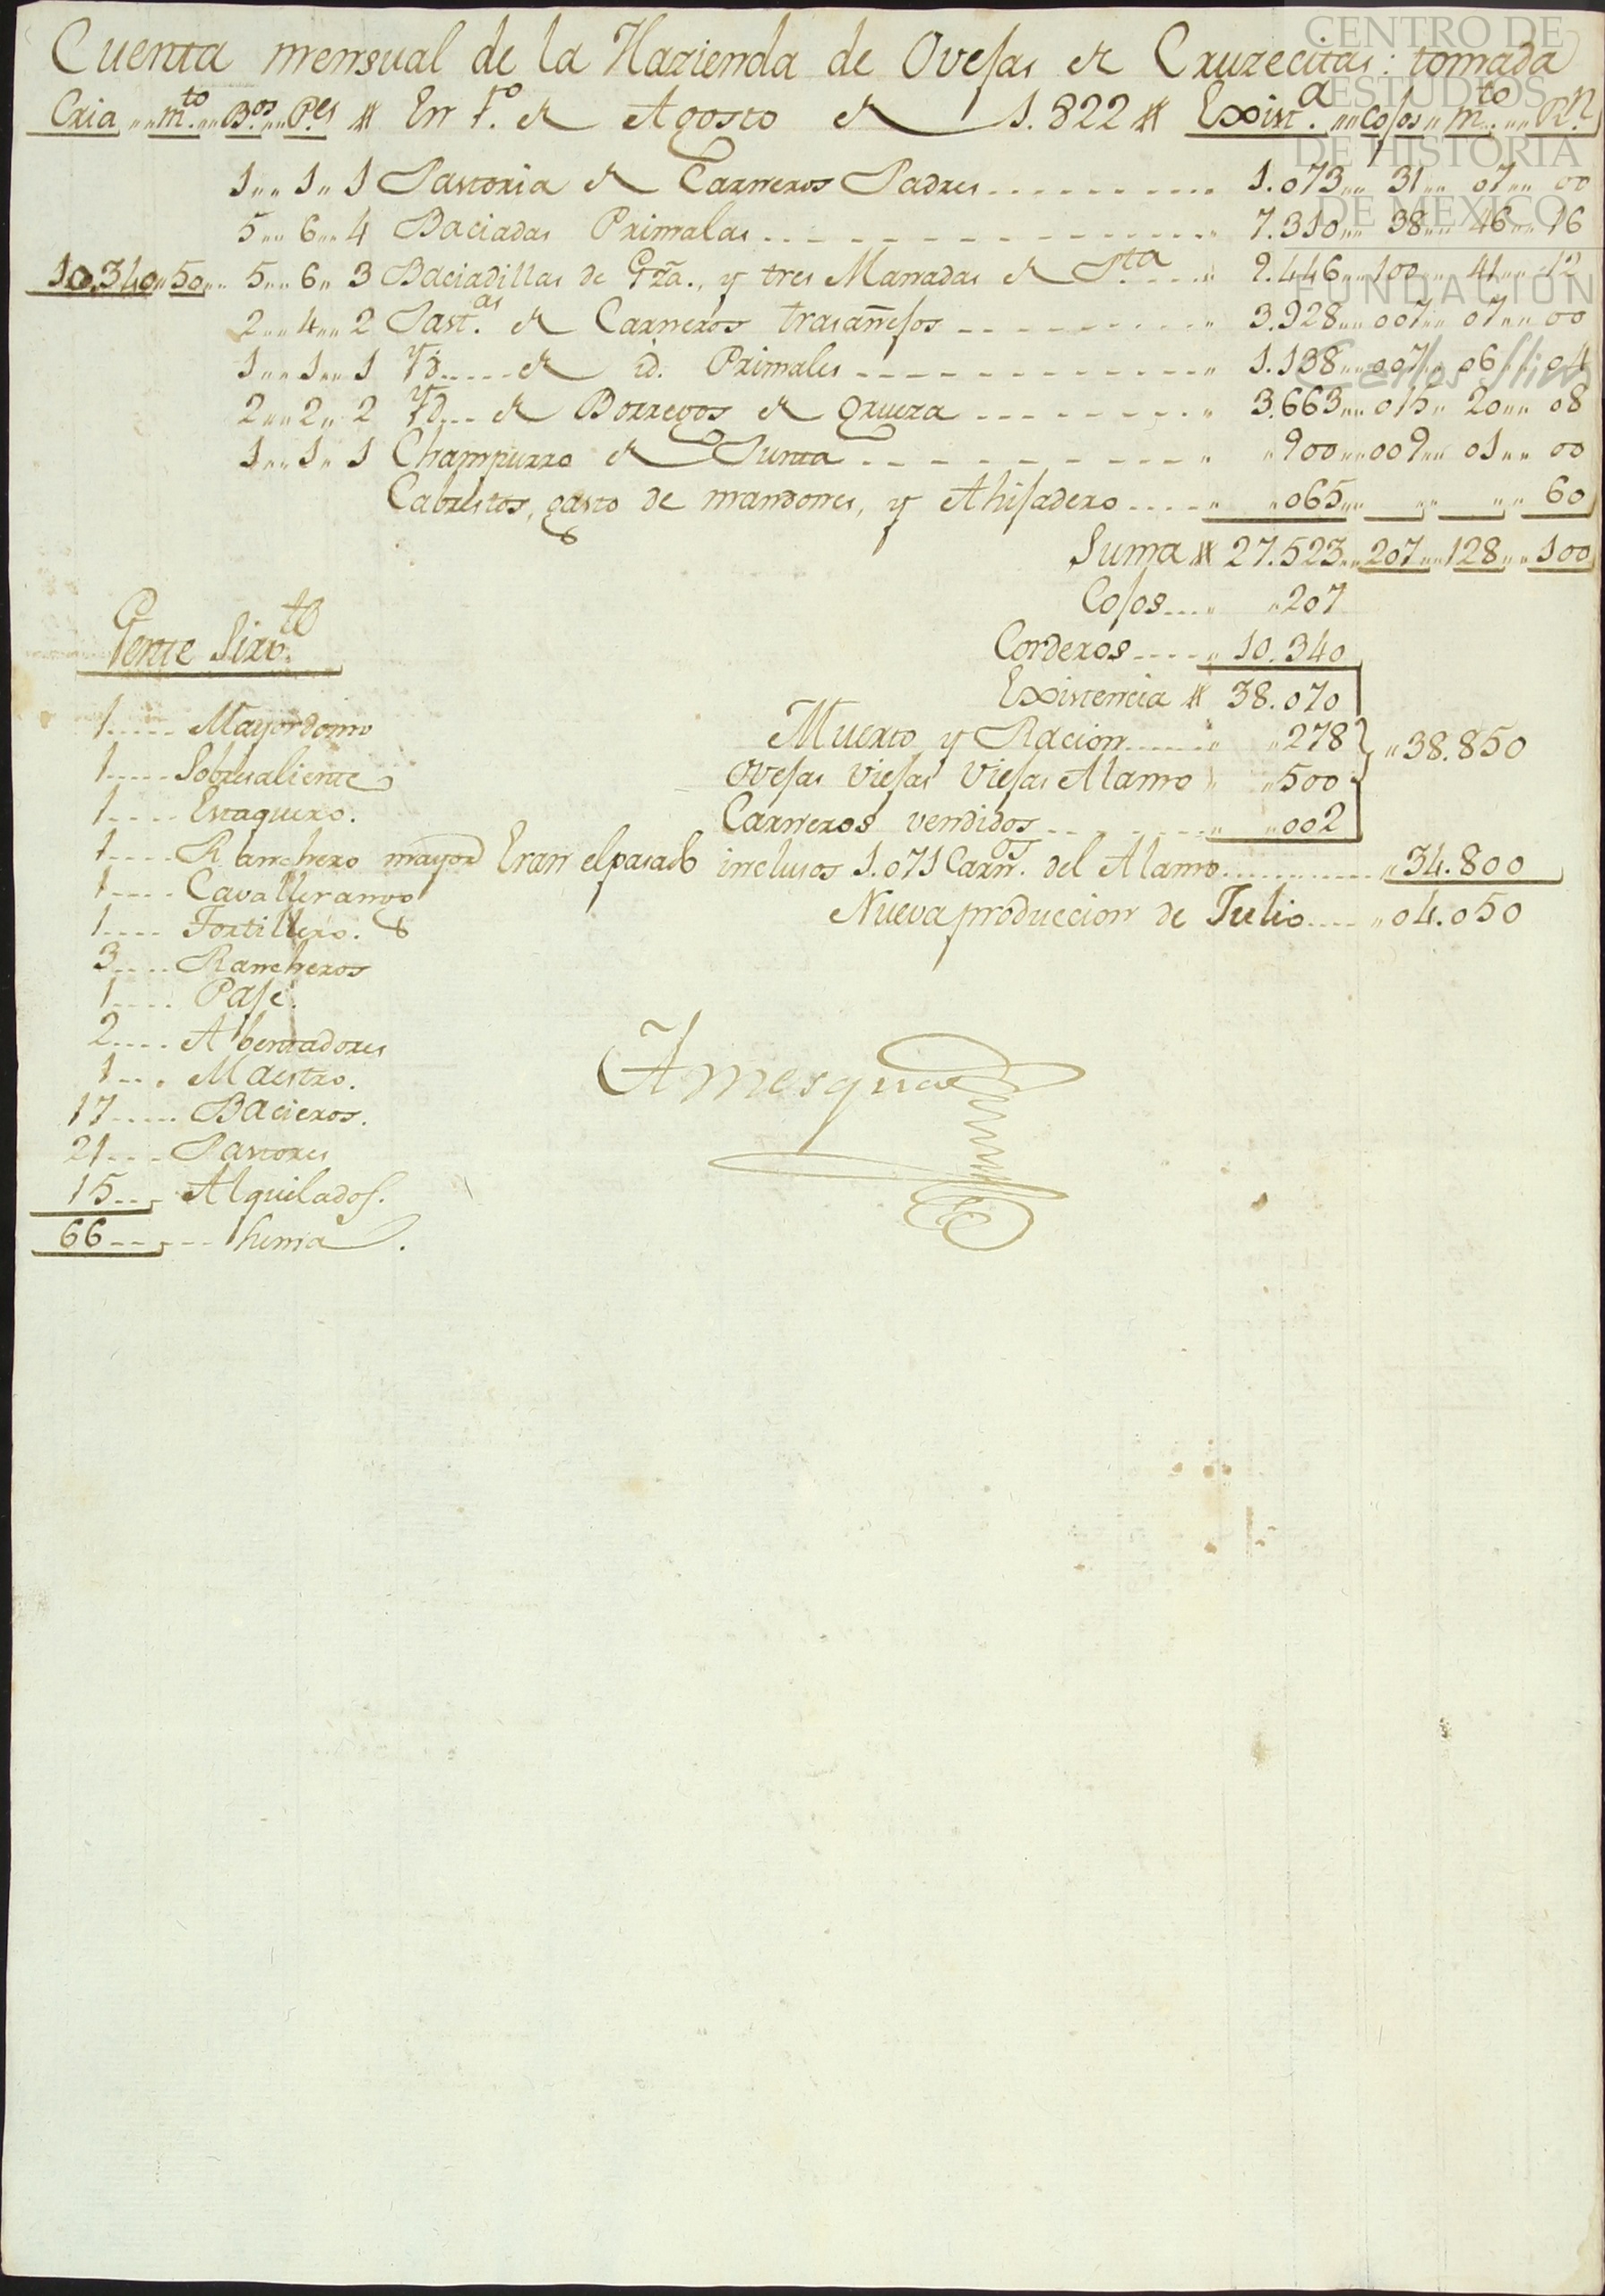 Cuenta mensual de la Hazienda de Ovejas de Cruzecitas: tomada
Cria m.to B.os P.es # En 1.o de Agosto de 1.822 # Exist.a Cojos m.to R.n
1 1 1 Pastoria de Carneros Padres 1.073 31 07 00
5 6 4 Baciadas Primalas 7.310 38 46 16
10.340 50 5 6 3 Baciadillas de Gza., y tres Manadas de P.ta 9.446 100 41 12
2 4 2 Past.as de Carneros trasañejos 3.928 007 07 00
1 1 1 Yd. de id. Primales 1.138 007 06 04
2 2 2 Yd. de Borregos de grueza 3.663 015 20 08
1 1 1 Champurro de Junta 900 009 01 00
Cabrestos, gasto de mandones, y Ahijadero 065 60
Suma # 27.523 207 128 100
Cojos 207
Corderos 10.340
Existencia # 38.070
Muerto y Racion 278 38.850
Ovejas Viejas Viejas Alamo 500
Carneros vendidos 002
Eran el pasado inclusos 1.071 Carn.os del Alamo 34.800
Nueva produccion de Julio 04.050
Gente Sirv.te
1 Mayordomo
1 Sobresaliente
1 Estaquero.
1 Ranchero mayor
1 Cavallerango
1 Tortillero.
3 Rancheros
1 Paje.
2 Abentadores
1 Maestro.
17 Bacieros.
21 Pastores
15 Alquilados.
66 Suma.
Amesquita
CENTRO DE
ESTUDIOS
DE HISTORIA
DE MEXICO
FUNDACIÓN
Carlos Slim